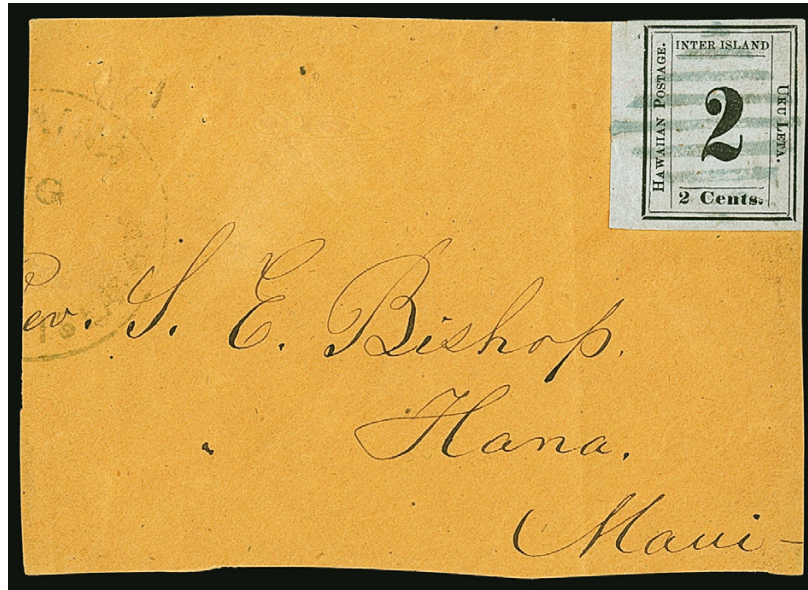 INTER ISLAND
HAWAIIAN POSTAGE.
2
UKU LETA.
2 Cents.
Rev. S. E. Bishop.
Hana.
Maui -